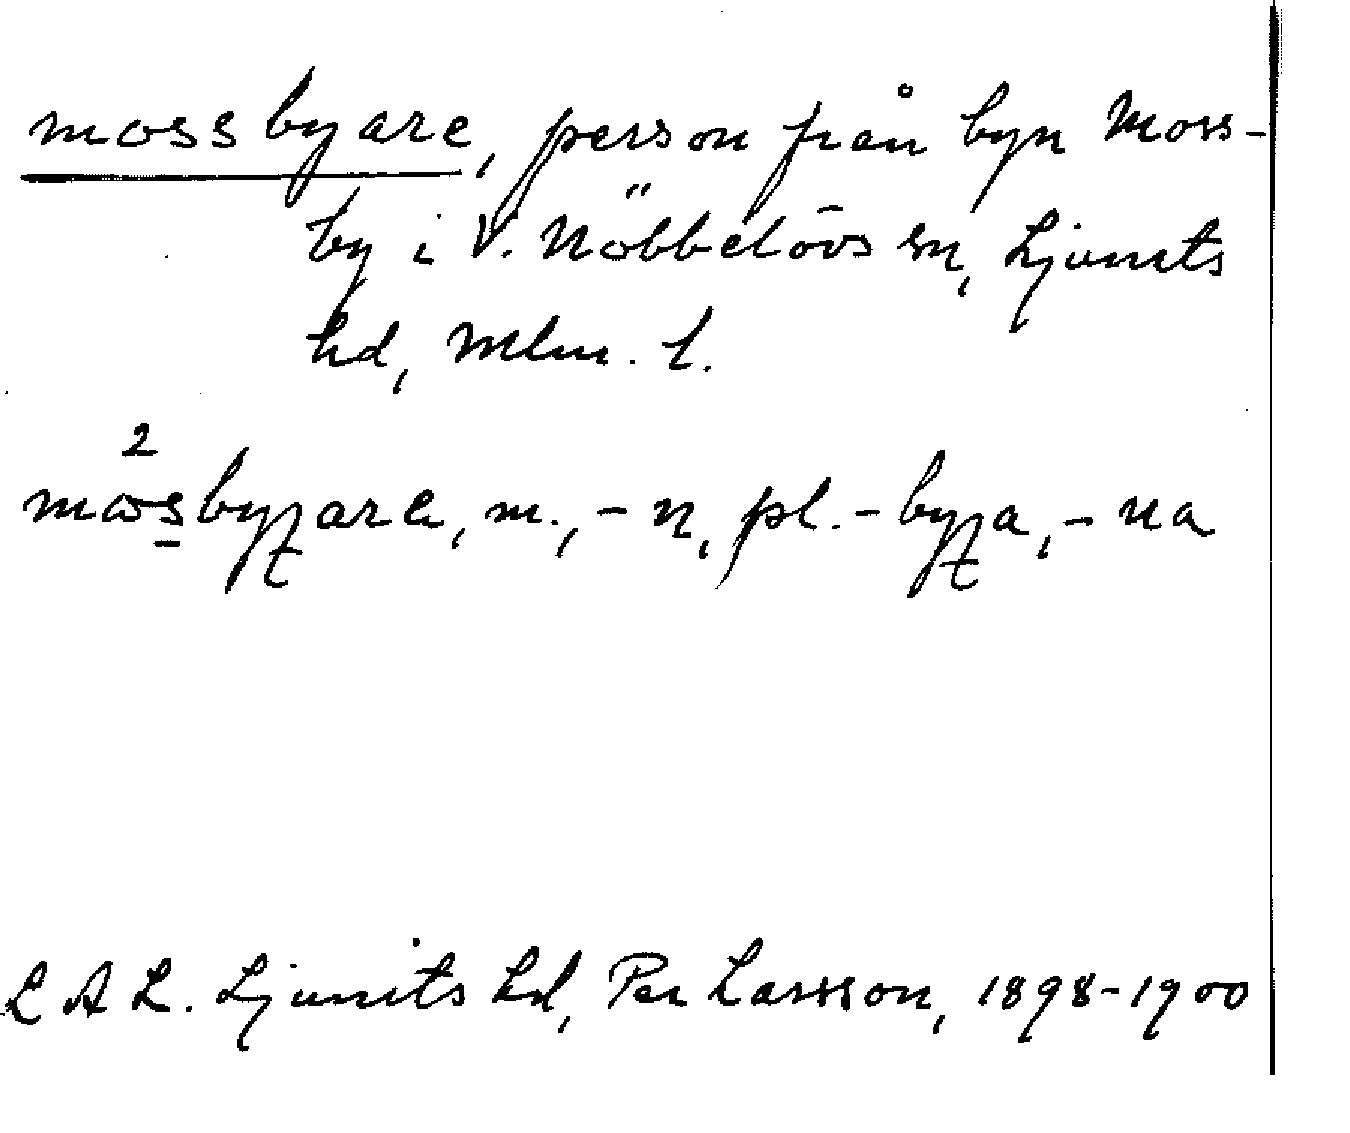 mossbyare, person från byn Moss-
by i V. Nöbbelövs sn, Ljunits
hd, Mlm. l.
2
mosbyɟarɐ, m., -n, pl. -byɟa, -na
LAL. Ljunits hd, Per Larsson, 1898-1900